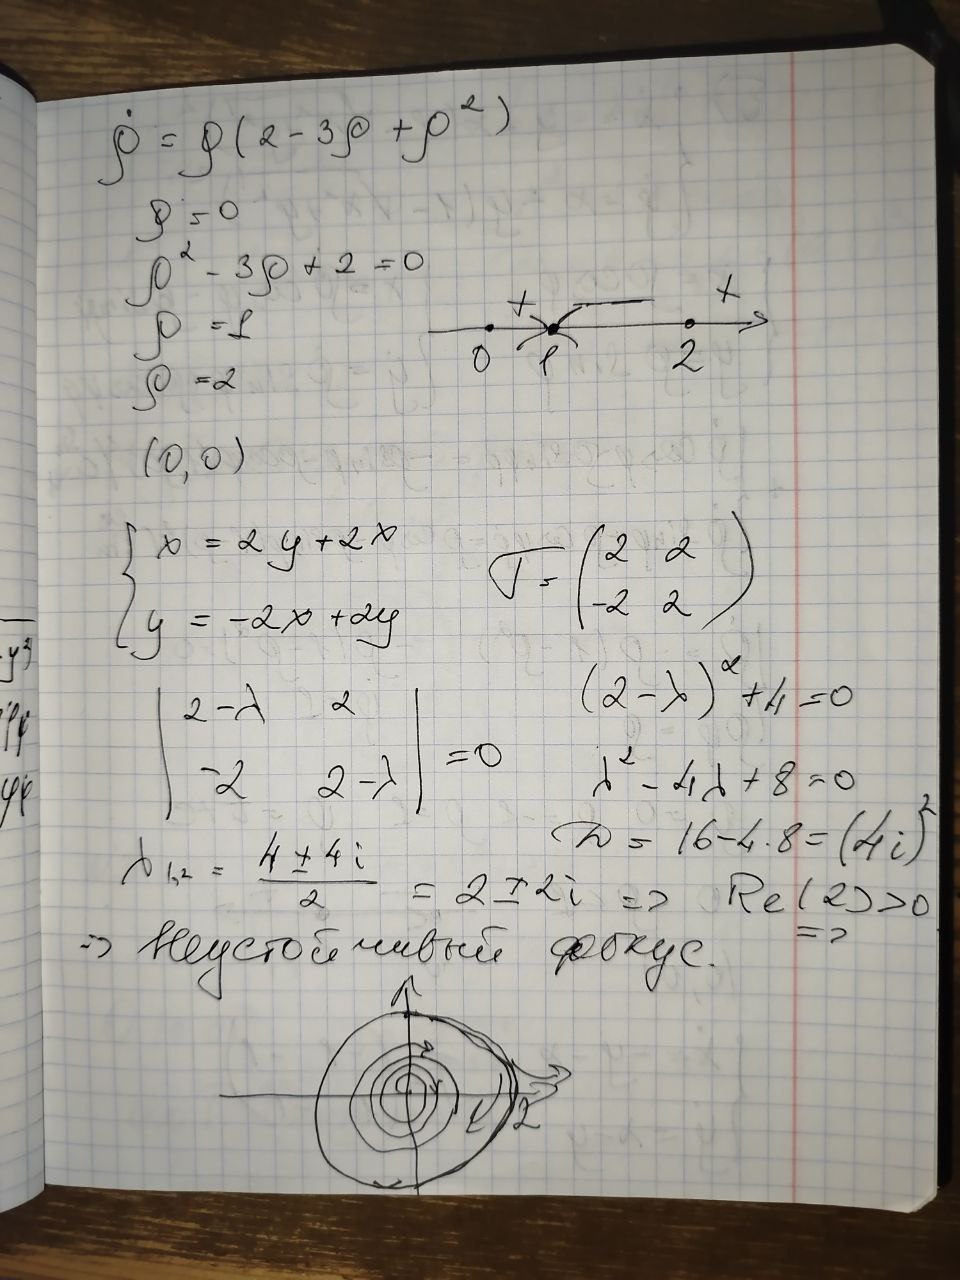 ρ̇ = ρ(2 - 3ρ + ρ²)
ρ = 0
ρ² - 3ρ + 2 = 0
ρ = 1
ρ = 2
+ — +
0 1 2
(0,0)
{ x = 2y + 2x
y = -2x + 2y
J = ( 2 2
-2 2 )
| 2-λ 2
-2 2-λ | = 0
(2-λ)² + 4 = 0
λ² - 4λ + 8 = 0
D = 16 - 4·8 = (4i)²
λ1,2 = (4 ± 4i)/2 = 2 ± 2i => Re(2) > 0 =>
=> Неустойчивый фокус.
1 2
-y³